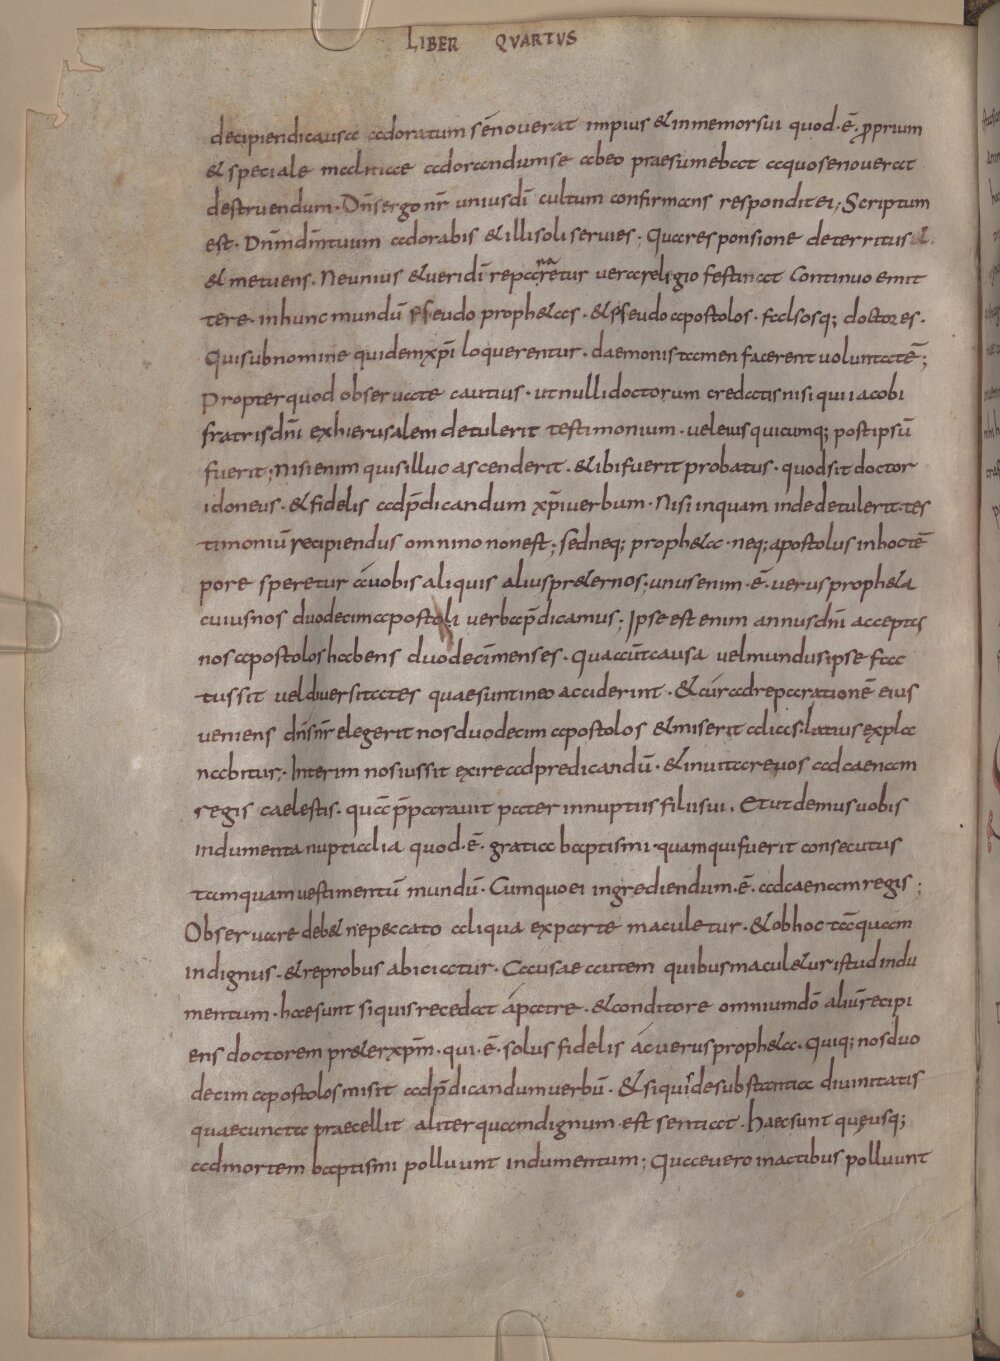 LIBER QVARTVS
decipiendi causa adoratum se nouerat impius & inmemor sui quod · ē · ꝓprium
& speciale malitiae adorandum se ab eo praesumebat a quo se nouerat
destruendum · Dn̄s ergo nr̄ unius dī cultum confirmans respondit ei; Scriptum
est · Dn̄m dn̄m tuum adorabis & illi soli seruies; Qua responsione deterritus
& metuens · Ne unius & ueri dī repararetur uera religio festinat Continuo emit
tere · in hunc mundū pseudo proph&as · & pseudo apostolos · falsosq; doctores ·
Qui sub nomine quidem xp̄i loquerentur · daemonis tamen facerent uoluntatē;
Propter quod obseruate cautius · ut nulli doctorum credatis nisi qui iacobi
fratris dn̄i ex hierusalem detulerit testimonium · uel eius quicumq; post ipsū
fuerit; Nisi enim quis illuc ascenderit · & ibi fuerit probatus · quod sit doctor
idoneus · & fidelis ad p̄dicandum xp̄i uerbum · Nisi inquam inde detulerit tes
timoniū recipiendus omnino non est; sed neq; proph&a · neq; apostolus in hoc tē
pore speretur a uobis aliquis alius pr&er nos; unus enim · ē · uerus proph&a
cuius nos duodecim apostoli uerba p̄dicamus; Ipse est enim annus dn̄i acceptus
nos apostolos habens duodecim menses · Qua aut causa uel mundus ipse fac
tus sit uel diuersitates quae sunt in eo acciderint · & cur ad reparationē eius
ueniens dn̄s nr̄ elegerit nos duodecim apostolos & miserit alias latius expla
nabitur; Interim nos iussit exire ad predicandū · & inuitare uos ad caenam
regis caelestis · quā p̄parauit pater in nuptiis filii sui · Et ut demus uobis
indumenta nuptialia quod · ē · gratia baptismi · quam qui fuerit consecutus
tamquam uestimentū mundū · Cum quo ei ingrediendum · ē · ad caenam regis;
Obseruare deb& ne peccato aliqua ex parte maculetur · & ob hoc tāquam
indignus · & reprobus abiciatur · Causae autem quibus macul&ur istud indu
mentum · hae sunt si quis recedat a patre · & conditore omnium dō aliū recipi
ens doctorem pr&er xp̄m · qui · ē · solus fidelis ac uerus proph&a · Quiq; nos duo
decim apostolos misit ad p̄dicandum uerbū · & si quis de substantia diuinitatis
quae cuncta praecellit aliter quam dignum est sentiat · Haec sunt quę usq;
ad mortem baptismi polluunt indumentum; Quae uero in actibus polluunt